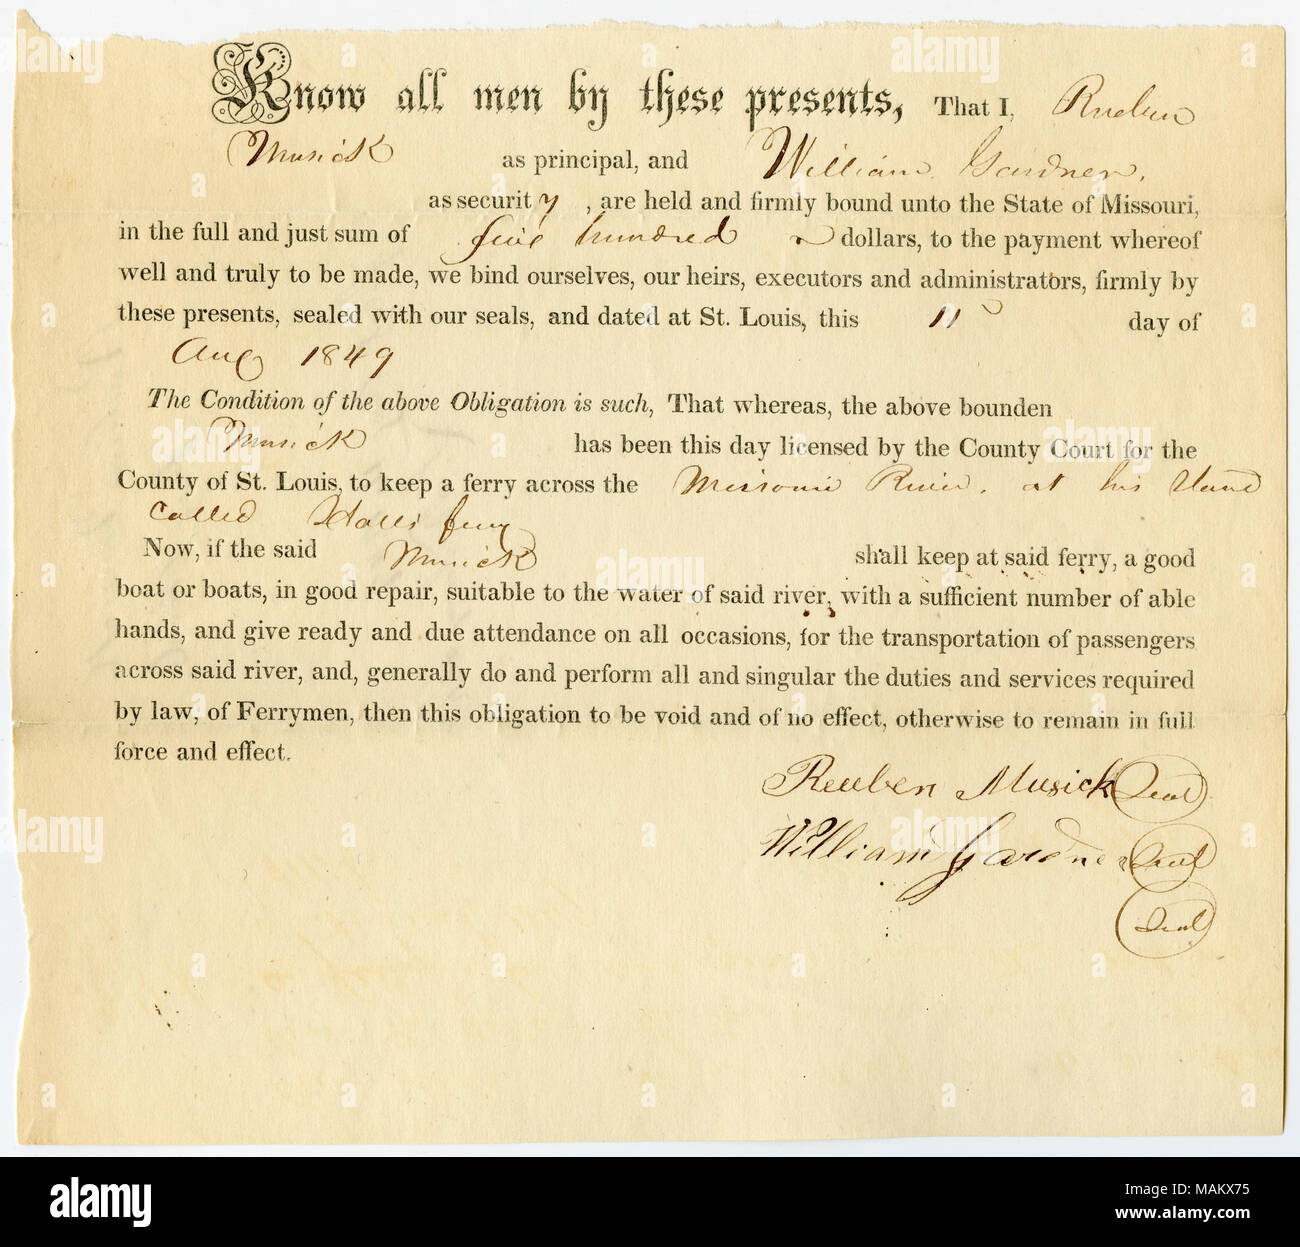 Know all men by these presents, That I, Rueben
Musick as principal, and William Gardner,
as security, are held and firmly bound unto the State of Missouri,
in the full and just sum of five hundred dollars, to the payment whereof
well and truly to be made, we bind ourselves, our heirs, executors and administrators, firmly by
these presents, sealed with our seals, and dated at St. Louis, this 11 day of
Aug 1849
The Condition of the above Obligation is such, That whereas, the above bounden
Musick has been this day licensed by the County Court for the
County of St. Louis, to keep a ferry across the Missouri River, at his stand
called Halls ferry
Now, if the said Musick shall keep at said ferry, a good
boat or boats, in good repair, suitable to the water of said river, with a sufficient number of able
hands, and give ready and due attendance on all occasions, for the transportation of passengers
across said river, and, generally do and perform all and singular the duties and services required
by law, of Ferrymen, then this obligation to be void and of no effect, otherwise to remain in full
force and effect.
Reuben Musick Seal
William Gardner Seal
Seal
alamy
Image ID: MAKX75
www.alamy.com